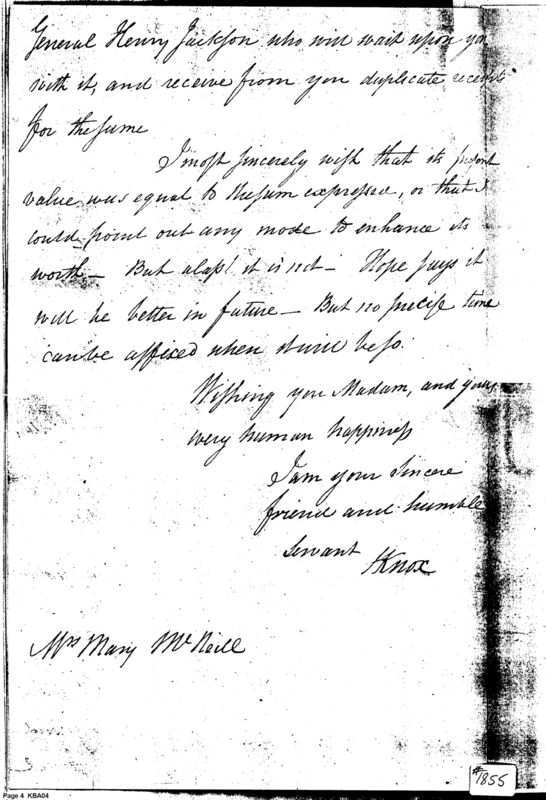 General Henry Jackson who will wait upon you
with it, and receive from you duplicate receipts
for the same
I most sincerely wish that its present
value was equal to the sum expressed, or that I
could point out any mode to enhance its
worth — But alas! it is not — Hope says it
will be better in future — But no precise time
can be affixed when it will be so.
Wishing you Madam, and yours
every human happiness
I am your sincere
friend and humble
Servant
HKnox
Mrs Mary McNeill
#1855
Page 4 KBA04